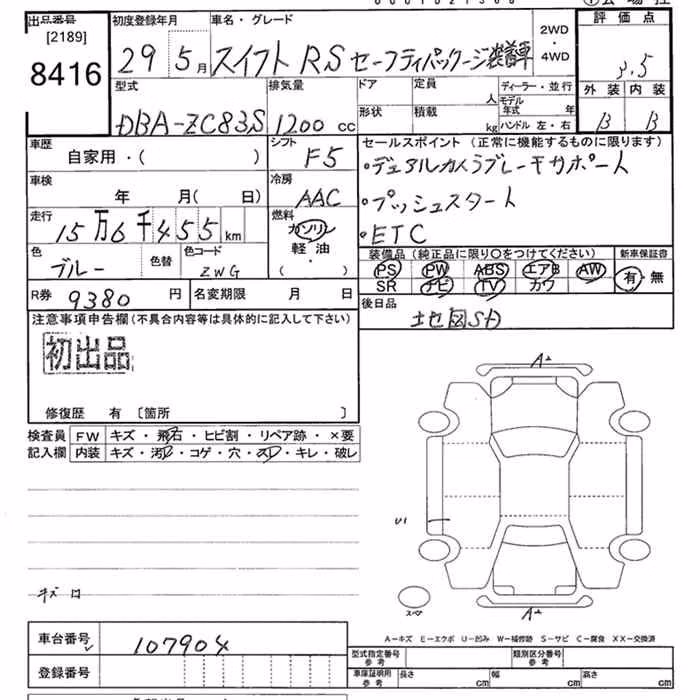 出品番号 [2189] 8416
初度登録年月 29 5月
車名・グレード スイフト RS セーフティパッケージ装着車
2WD・4WD
評価点 3.5
外装 内装
B B
型式 DBA-ZC83S
排気量 1200 cc
ドア 形状
定員 人
積載 kg
ディーラー・並行
モデル年式 年
ハンドル 左・右
車歴 自家用・( )
シフト F5
セールスポイント(正常に機能するものに限ります)
・デュアルカメラブレーキサポート
・プッシュスタート
・ETC
車検 年 月( 日)
冷房 AAC
走行 15万6千455 km
燃料 ガソリン・軽油 ( )
色 ブルー 色替
色コード ZWG
装備品(純正品に限り○をつけてください)
PS PW ABS エアB AW
SR ナビ TV カワ
新車保証書 有・無
R券 9380 円
名変期限 月 日
後日品 地図SD
注意事項申告欄(不具合内容等は具体的に記入して下さい)
初出品
修復歴 有 〔箇所 〕
検査員記入欄
FW キズ・飛石・ヒビ割・リペア跡・×要
内装 キズ・汚レ・コゲ・穴・スレ・キレ・破レ
A
U1
スペア
A
A-キズ E-エクボ U-凹み W-補修跡 S-サビ C-腐食 XX-交換済
車台番号 107904
登録番号
型式指定番号 参考
類別区分番号 参考
車庫証明用 参考 長さ cm 幅 cm 高さ cm